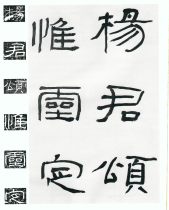 楊君頌
惟靈定
楊君頌惟靈定